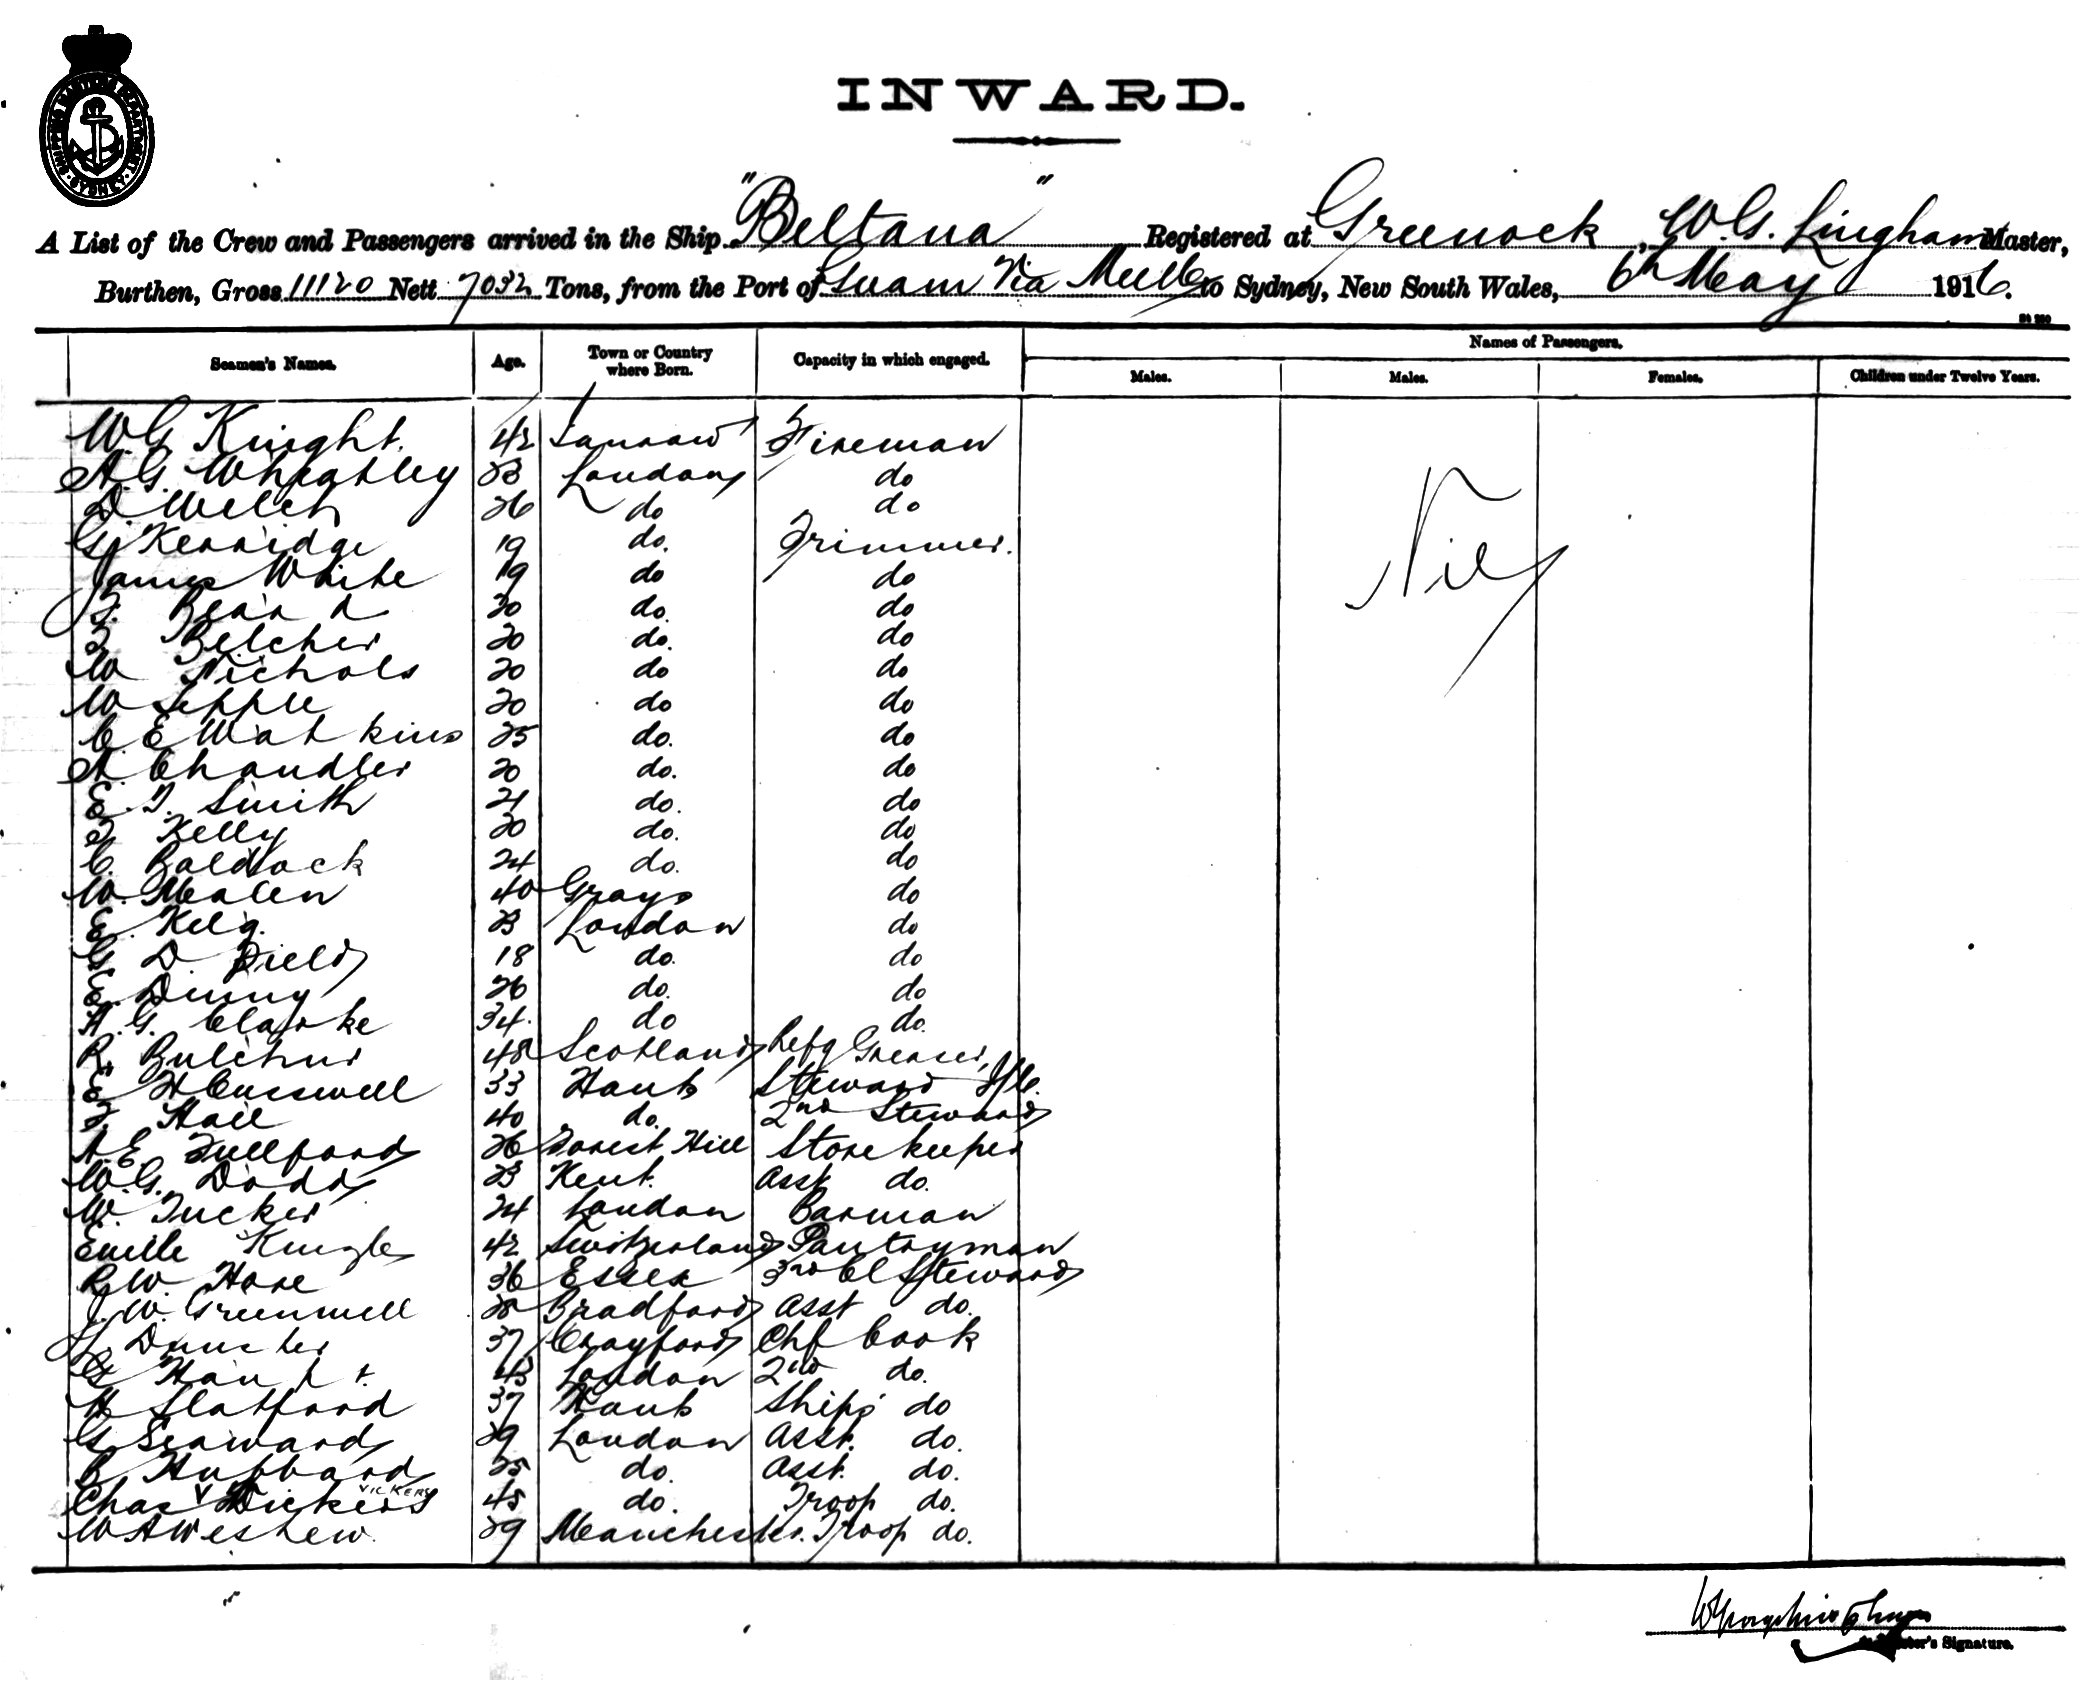 SHIPPING MASTERS DEPARTMENT SYDNEY
INWARD.
A List of the Crew and Passengers arrived in the Ship "Beltana" Registered at Greenock, W.G. Lingham Master,
Burthen, Gross 11120 Nett 7032 Tons, from the Port of Via Melb to Sydney, New South Wales, 6th May 1916.
Seamen's Names. Age. Town or Country where Born. Capacity in which engaged. Names of Passengers.
Males. Males. Females. Children under Twelve Years.
W G Knight. 42 Fireman
A. G. Wheatley 23 London do
D. Welch 26 do do
G. Kerridge 19 do. Trimmer.
James White 19 do do
Beard 20 do. do
Belcher 20 do. do
W Nichols 20 do do
W Sepple 20 do do
C. E Watkins 25 do. do
A. Chandler 20 do. do
E. T. Smith 21 do. do
Kelly 20 do. do
C. Baldock 24 do. do
W. Mealen 40 Grays do
E. 23 London do
G. D. Field 18 do. do
E. Denny 26 do. do
A. G. Clarke 34. do do.
R. Butcher 48 Scotland Refg Greaser,
E H Cresswell 33 Hants Steward I/C.
Hall 40 do. 2nd Steward
A. E. Fullford 26 Forest Hill Storekeeper
W. G. Dodd 23 Kent. Asst do.
W. Tucker 24 London Barman
Emile 42 Switzerland Pantryman
R. W. Hore 36 Essex 3rd Cl Steward
J. W. Greenwell 28 Bradford Asst do.
37 Crayford Chf Cook
43 London 2nd do.
H Slatford 37 Hants Ships' do
G. Seaward 29 London Asst. do.
B Hubbard 25 do. Asst. do.
Chas Vickers VICKERS 45 do. Troop do.
W A 29 Manchester. Troop do.
Nil
Master's Signature.